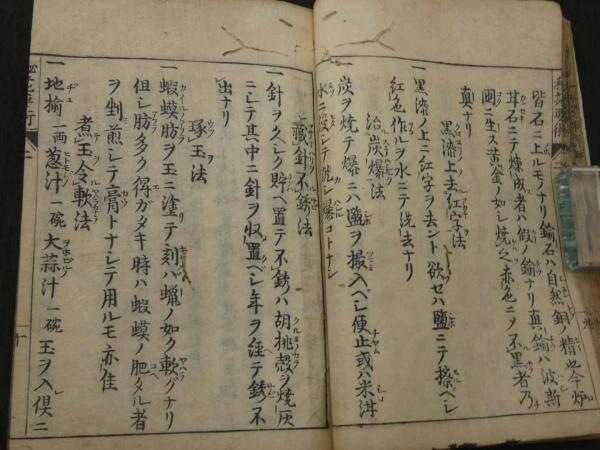 皆石ニ上ルモノナリ鍮石ハ自然銅ノ精也今炉
甘石ニテ煉成者ハ假ノ鍮ナリ真鍮ハ波斯
國ニ生ス黄金ノ如シ焼之赤色ニメ不黒者乃
真ナリ
黒漆上去紅字法
一黒漆ノ上ニ紅字ヲ去ント欲セハ鹽ニテ擦ベシ
紅色作ルヲ水ニテ洗去ナリ
治炭爆法
一炭ヲ焼テ爆ニハ鹽ヲ撮入ベシ便止或ハ米泔
水ニ浸シテ晒シ爆コトナシ
藏針不銹法
一針ヲ久シク貯ヘ置テ不銹ハ胡桃殻ヲ焼灰
ニシテ其中ニ針ヲ収置ベシ年ヲ経テ銹不
出ナリ
琢玉法
一蝦蟆肪ヲ玉ニ塗テ刻バ蠟ノ如ク軟ダナリ
但シ肪多ク得ガタキ時ハ蝦蟆ノ肥タル者
ヲ剉煎シテ膏トナシテ用ルモ亦佳
煮玉令軟法
一地揄一両葱汁一碗大蒜汁一碗玉ヲ入倶ニ